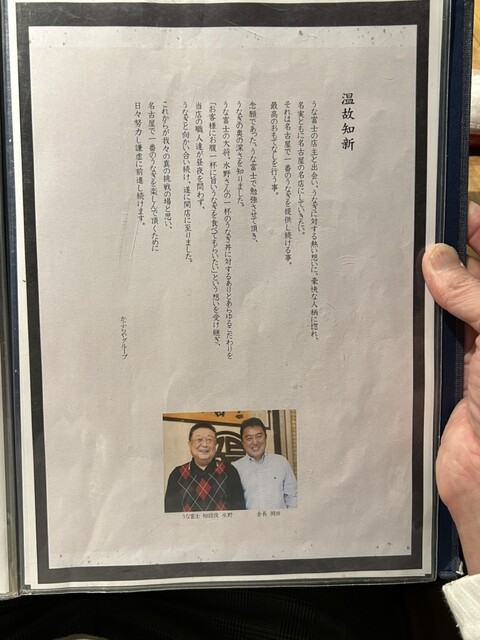 温故知新
うな富士の店主と出会い、うなぎに対する熱い想いに、豪快な人柄に惚れ、
名実ともに名古屋の名店にしていきたい。
それは名古屋で一番のうなぎを提供し続ける事。
最高のおもてなしを行う事。
念願であった、うな富士で勉強させて頂き、
うなぎの奥の深さを知りました。
うな富士の大将、水野さんの一杯のうなぎ丼に対するありとあらゆるこだわりを
「お客様にお腹一杯に旨いうなぎを食べてもらいたい」という想いを受け継ぎ、
当店の職人達が昼夜を問わず、
うなぎと向かい合い続け、遂に開店に至りました。
これからが我々の真の挑戦の場と思い、
名古屋で一番のうなぎを楽しんで頂くために
日々努力し謙虚に前進し続けます。
かぶらやグループ
うな富士 相談役 水野
会長 岡田